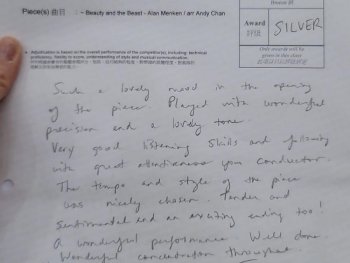 Piece(s) 曲目 : ~ Beauty and the Beast - Alan Menken / arr Andy Chan
Bronze 銅
Award
評級
SILVER
Only awards will be
given in this class
Adjudication is based on the overall performance of the competitor(s), including: technical
proficiency, fidelity to score, understanding of style and musical communication.
Such a lovely mood in the opening
of the piece. Played with wonderful
precision and a lovely tone.
Very good listening skills and following
with great attentiveness your conductor.
The tempo and style of the piece
was nicely chosen. Tender and
Sentimental and an exciting ending too!
A wonderful performance. Well done
Wonderful concentration throughout.